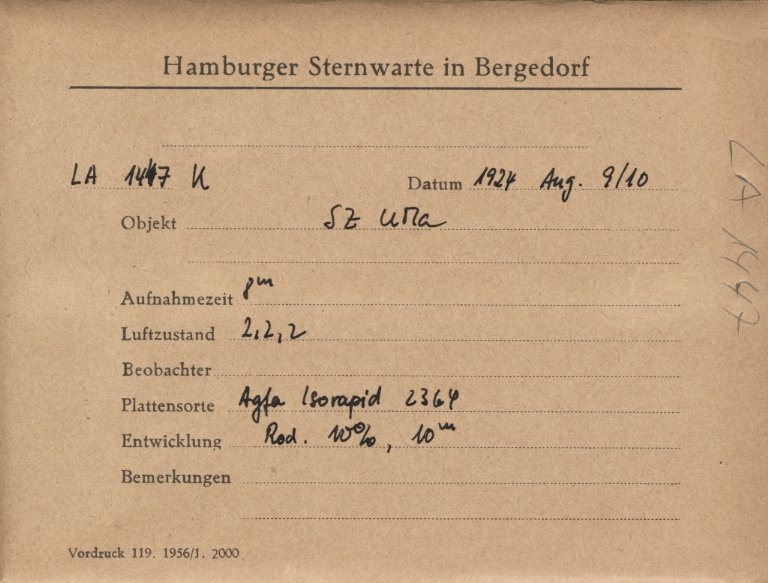 Hamburger Sternwarte in Bergedorf
LA 1447 K Datum 1924 Aug. 9/10
Objekt SZ UMa
Aufnahmezeit 8m
Luftzustand 2,2,2
Beobachter
Plattensorte Agfa Isorapid 2364
Entwicklung Rod. 10%, 10m
Bemerkungen
Vordruck 119. 1956/1. 2000
LA 1447